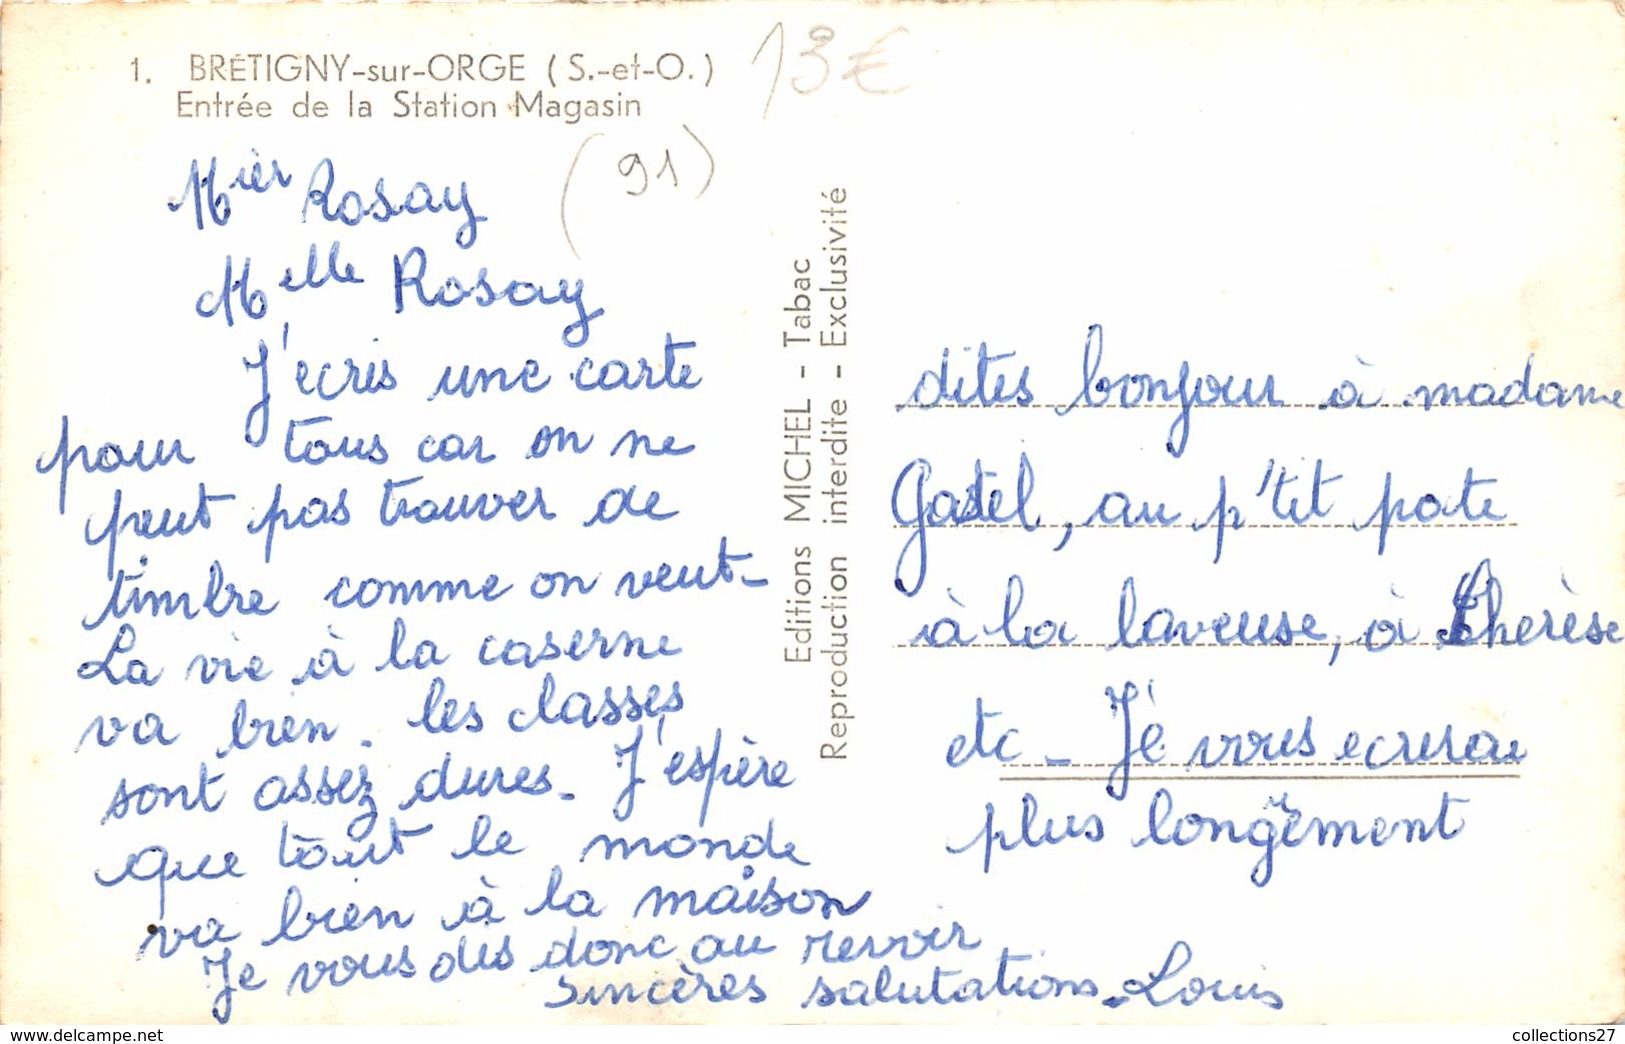 1. BRÉTIGNY-sur-ORGE (S.-et-O.)
Entrée de la Station Magasin
13€
(91)
Mier Rosay
Melle Rosay
J'ecris une carte
pour tous car on ne
peut pas trouver de
timbre comme on veut-
La vie à la caserne
va bien. les classes
sont assez dures. J'espère
que tout le monde
va bien à la maison
Je vous dis donc au revoir
sincères salutations. Louis
Editions MICHEL - Tabac
Reproduction interdite - Exclusivité
dites bonjour à madame
Gastel, au p'tit pote
à la laveuse, à Therèse
etc - Je vous ecrirai
plus longement
collections27